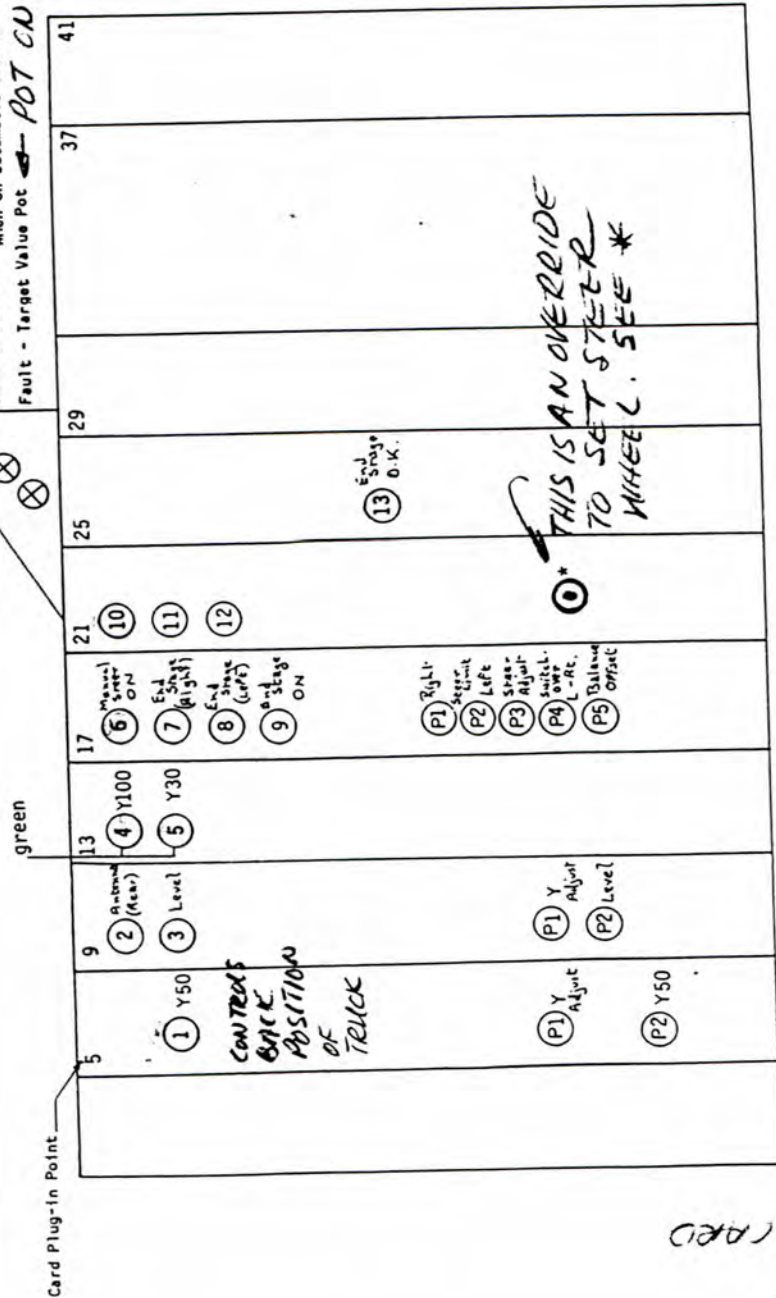 Fault - Target Value Pot ← POT ON
Card Plug-in Point
green
5
9
13
17
21
25
29
37
41
1 Y50
CONTROLS
BACK
POSITION
OF
TRUCK
P1 Y
Adjust
P2 Y50
2 Antenna
(Rear)
3 Level
P1 Y
Adjust
P2 Level
4 Y100
5 Y30
6 Manual
Steer
ON
7 End
Stage
(Right)
8 End
Stage
(Left)
9 End Stage
ON
P1 Right
Steer
Limit
P2 Left
P3 Steer
Adjust
P4 Switch-
over
L-Rt.
P5 Balance
Offset
10
11
12
*
13 End
Stage
O.K.
THIS IS AN OVERRIDE
TO SET STEER
WHEEL. SEE *
CARD